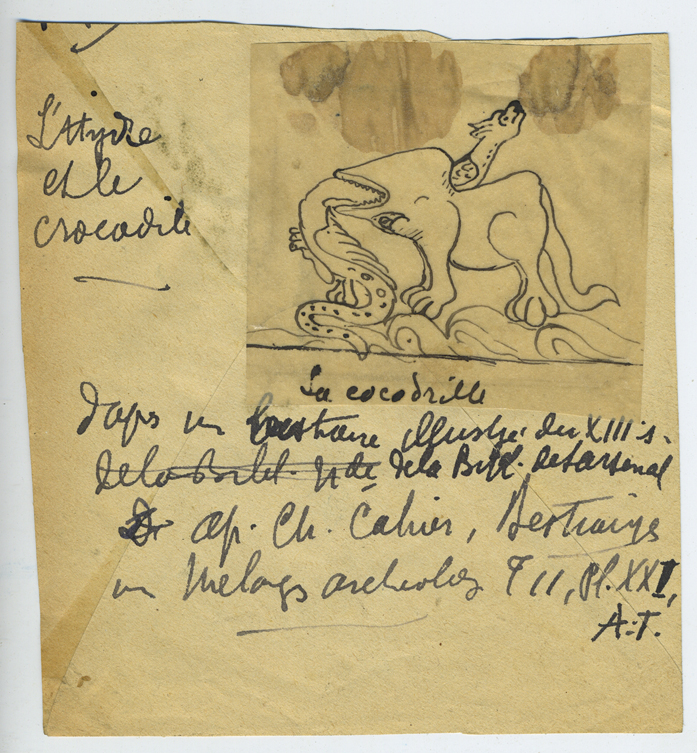 L'Hydre
et le
crocodile
La cocodrille
d'aps un bestiaire illustré du XIII s.
de la Bibl. Nde de la Bibl. de l'arsenal
ap. Ch. Cahier, Bestiaires
in Melangs archeolog T II, Pl. XXI,
A.T.